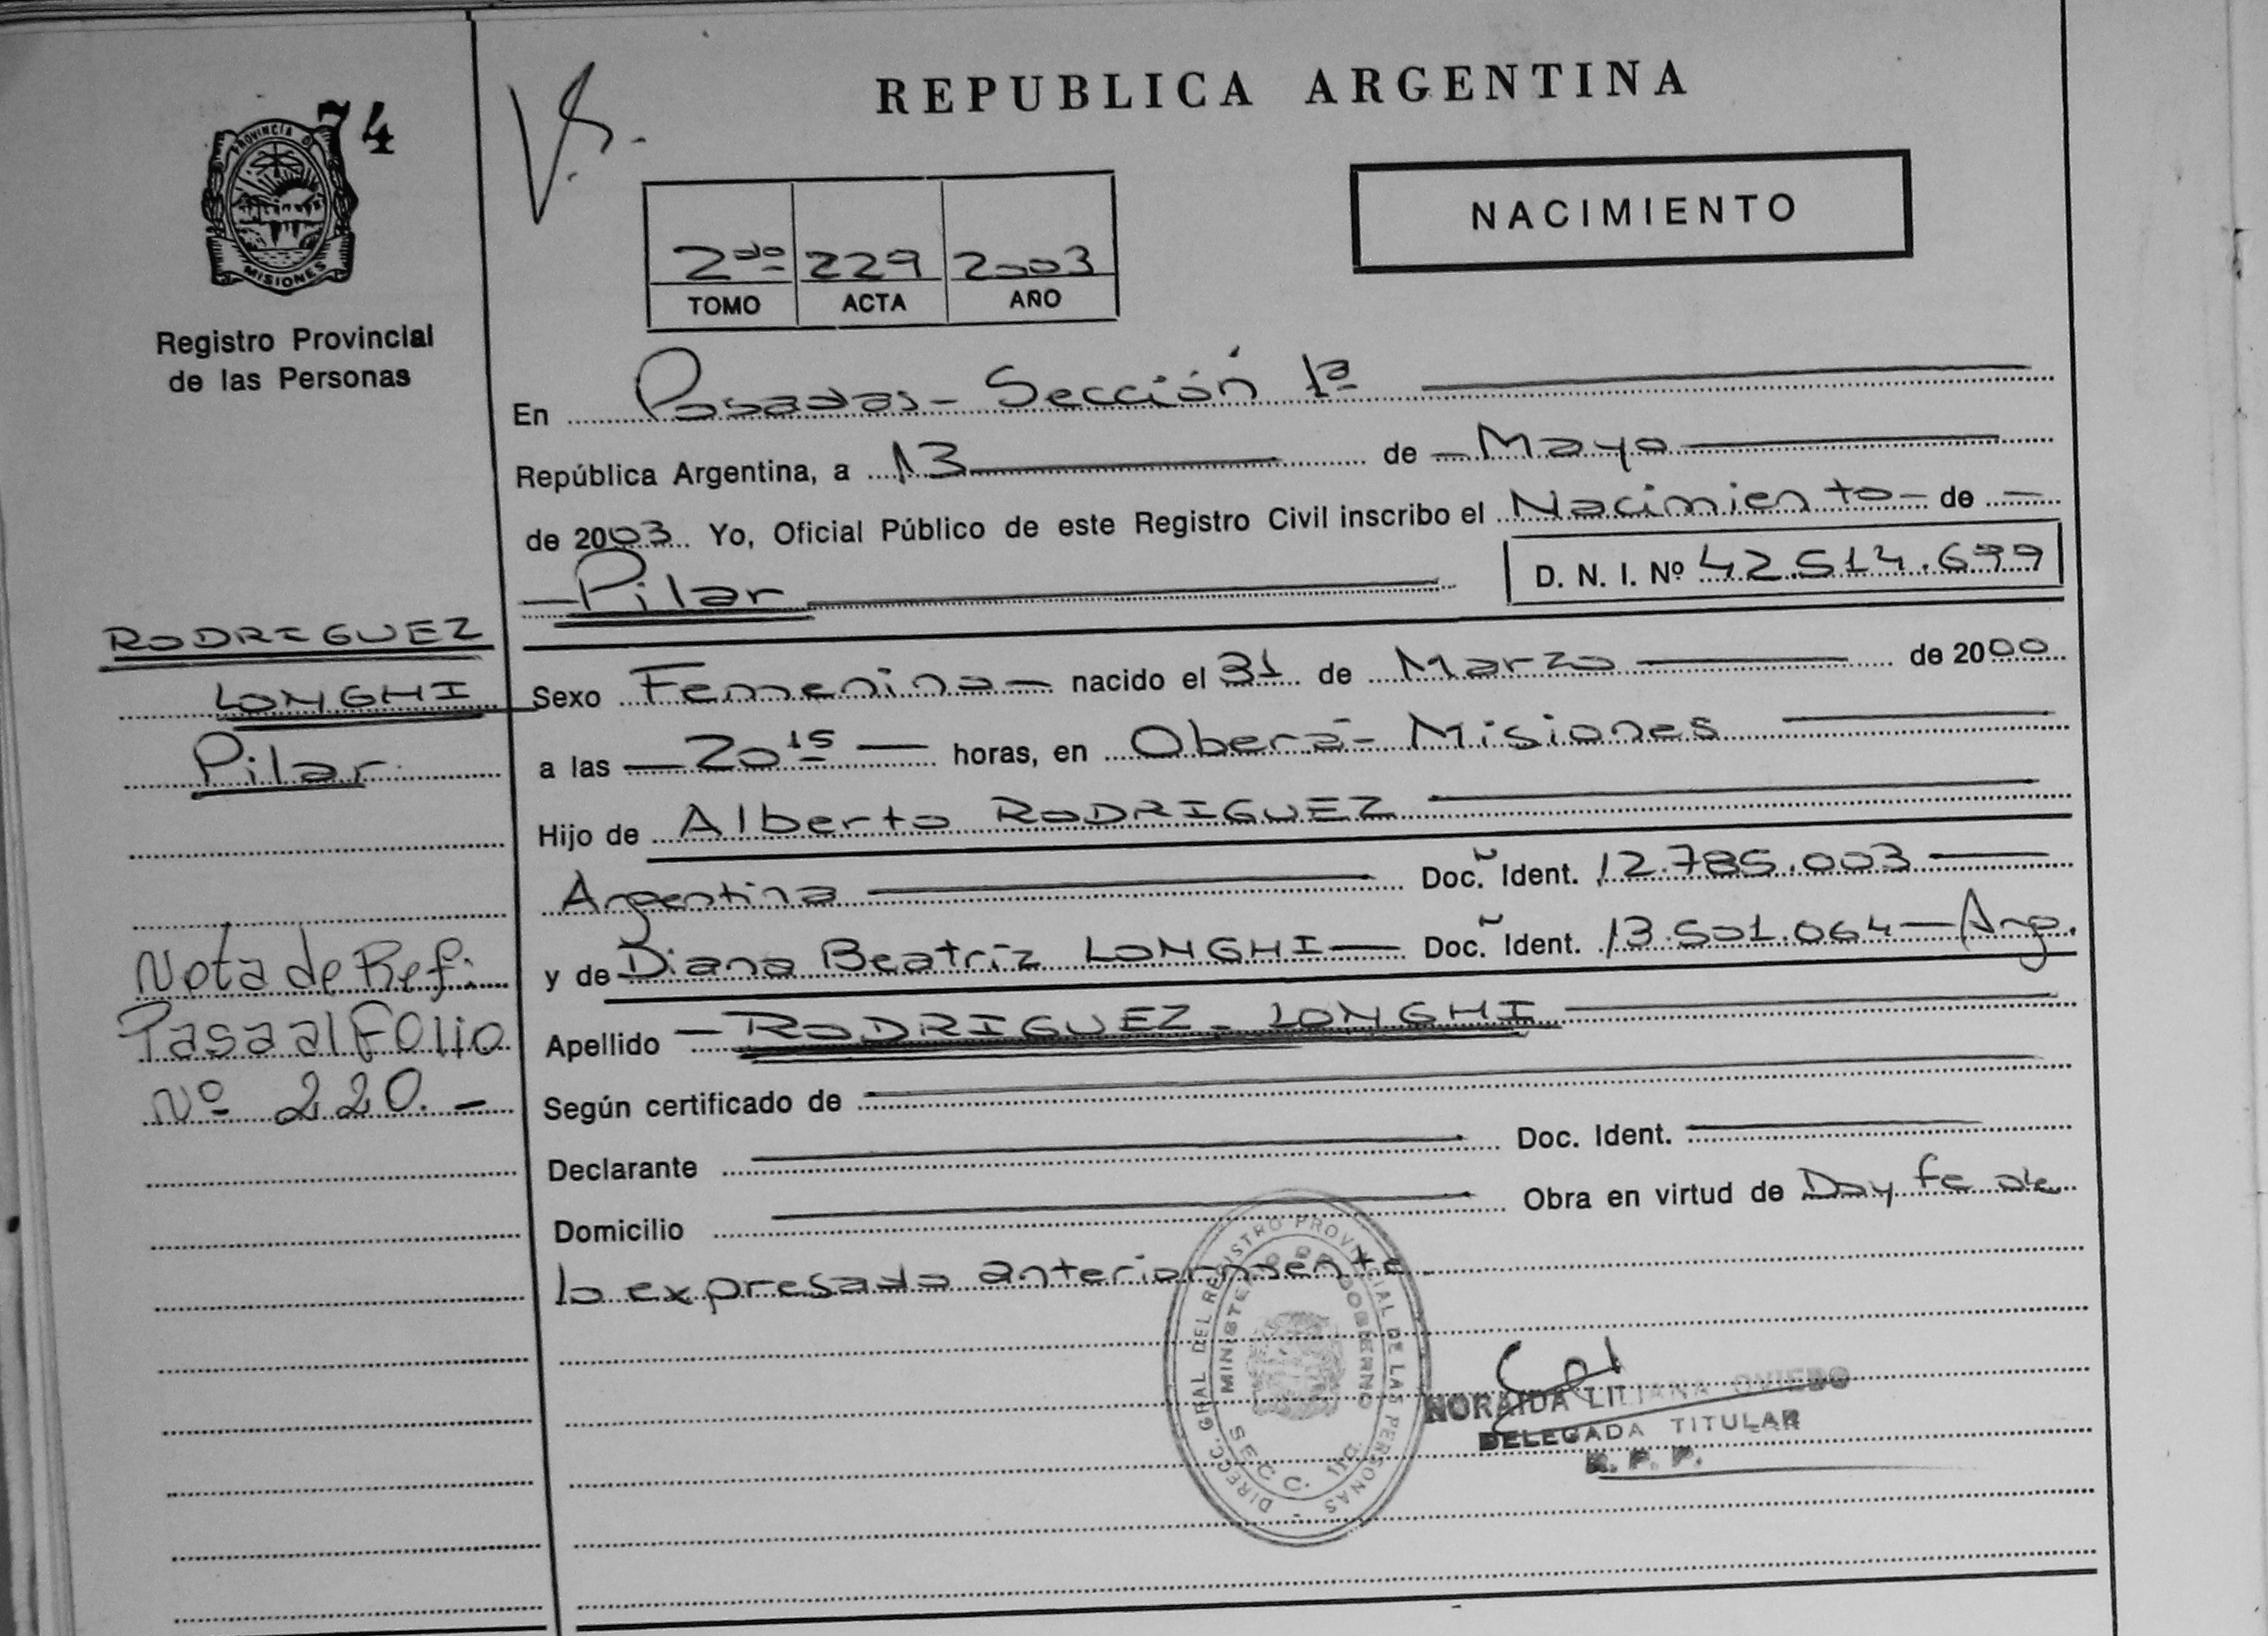 74
PROVINCIA DE
MISIONES
Registro Provincial
de las Personas
RODRIGUEZ
LONGHI
Pilar
Nota de Ref:
Pasa al Folio
Nº 220.-
REPUBLICA ARGENTINA
NACIMIENTO
2do 229 2003
TOMO ACTA AÑO
En Posadas - Sección 1ª
República Argentina, a 13 de - Mayo
de 2003. Yo, Oficial Público de este Registro Civil inscribo el Nacimiento - de -
- Pilar D. N. I. Nº 42.514.699
Sexo Femenino - nacido el 31 de Marzo de 2000
a las - 20 15 - horas, en Oberá - Misiones
Hijo de Alberto RODRIGUEZ
Argentina Doc. Ident. 12.785.003 -
y de Diana Beatriz LONGHI - Doc. Ident. 13.501.064 - Arg.
Apellido - RODRIGUEZ - LONGHI
Según certificado de
Declarante Doc. Ident.
Domicilio Obra en virtud de Doy fe de
lo expresado anteriormente.
DIRECC. GRAL DEL REGISTRO PROVINCIAL DE LAS PERSONAS
MINISTERIO DE GOBIERNO
SECC. 1ra.
NORAIDA LILIANA OVIEDO
DELEGADA TITULAR
R. P. P.